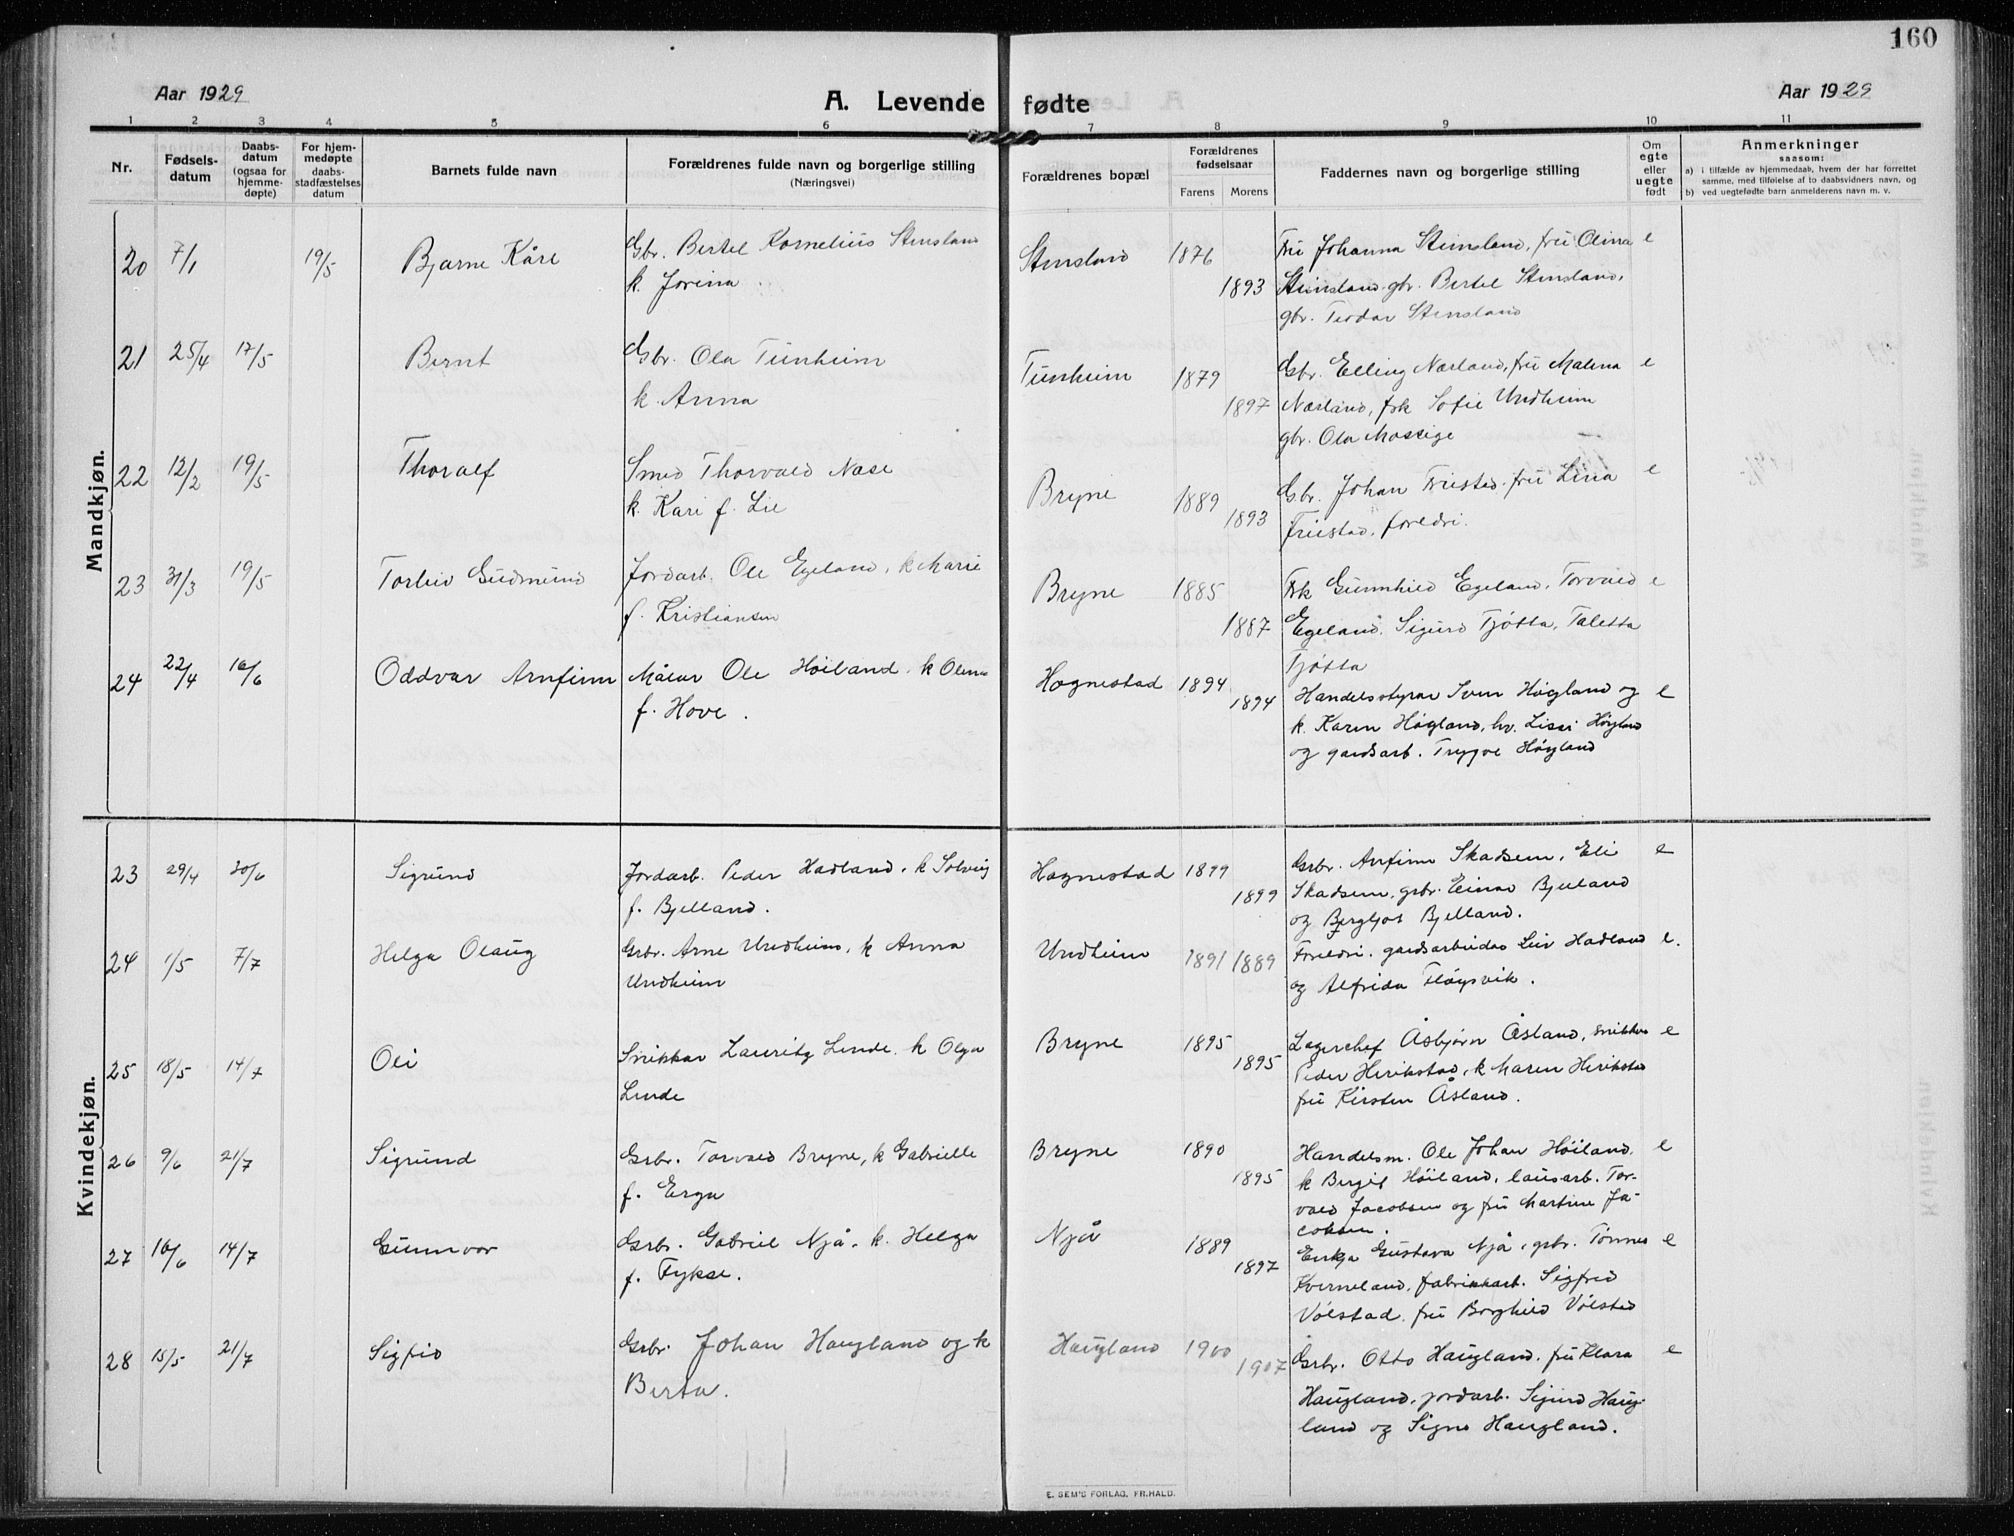 160
Aar 1929
A. Levende fødte
Aar 1929
1 2 3 4 5 6 7 8 9 10 11
Nr.
Fødsels-
datum
Daabs-
datum
(ogsaa for
hjemme-
døpte)
For hjem-
medøpte
daabs-
stadfæstelses
datum
Barnets fulde navn
Forældrenes fulde navn og borgerlige stilling
(Næringsvei)
Forældrenes bopæl
Forældrenes
fødselsaar
Farens Morens
Faddernes navn og borgerlige stilling
Om
egte
eller
uegte
født
Anmerkninger
saasom:
a) i tilfælde av hjemmedaab, hvem der har forrettet
samme, med tilføielse af to daabsvidners navn, og
b) ved uegtefødte barn anmelderens navn m. v.
Mandkjøn.
20 7/1 19/5 Bjarne Kåre
Gbr. Bertel Kornelius Stensland
k. Jorina
Stensland 1876 1893
Fru Johanna Stensland, fru Olina e
Stensland gbr. Bertel Stensland,
gbr. Teodor Stensland
21 25/4 17/5 Bernt
Gbr. Ola Tunheim
k. Anna
Tunheim 1879 1897
Gbr. Elling Nærland, fru Malena e
Nærland, frk Sofie Undheim
gbr. Ola Mossige
22 12/2 19/5 Thoralf
Smed Thorvald Næse
k. Kari f. Lie
Bryne 1889 1893
Gbr. Johan Friestad. fru Lina e
Friestad, foreldri.
23 31/3 19/5 Torleiv Gudmund
Jordarb. Ole Egeland, k Marie
f. Kristiansen
Bryne 1885 1887
Frk Gunnhild Egeland, Torvald e
Egeland. Sigurd Tjøtta, Taletta
Tjøtta
24 22/4 16/6 Oddvar Arnfinn
Målar Ole Høiland. k Olena
f. Hove.
Hognestad 1894 1894
Handelsstyrar Sven Høgland og e
k. Karen Høgland, hv. Lissi Høyland
og gardsarb. Trygve Høyland
Kvindekjøn.
23 29/4 30/6 Sigrund
Jordarb. Peder Hadland. k Solveig
f. Bjelland.
Hognestad 1899 1899
Grbr. Arnfinn Skadsem, Eli e
Skadsem, grbr. Einar Bjelland
og Bergljot Bjelland.
24 1/5 7/7 Helga Olaug
Grbr. Arne Undheim, k Anna
Undheim
Undheim 1891 1889
Foreldri. gardsarbeidar Leiv Hadland e.
og Alfrida Fløysvik.
25 18/5 14/7 Oli
Snikkar Lauritz Linde. k Olga
Linde
Bryne 1895 1895
Lagerchef Åsbjørn Åsland, snikkar e
Peder Herikstad, k Maren Herikstad
fru Kirsten Åsland.
26 9/6 21/7 Sigrund
Grbr. Torvald Bryne, k Gabrielle
f. Erga
Bryne 1890 1895
Handelsm. Ole Johan Høiland, e
k Bergit Høiland, lausarb. Tor-
vald Jacobsen og fru Martine Ja-
cobsen.
27 16/6 14/7 Gunnvor
Grbr. Gabriel Njå. k. Helga
f. Fykse.
Njå 1889 1897
Enkja Gustava Njå, grbr. Tønnes e
Kverneland, fabrikkarb. Sigfred
Vølstad, fru Borghild Vølstad
28 15/5 21/7 Sigfrid
Grbr. Johan Haugland og k
Berta.
Haugland 1900 1907
Grbr. Otto Haugland. fru Klara e
Haugland, jordarb. Sigurd Haug-
land og Signe Haugland.
E. SEM'S FORLAG, FR.HALD.